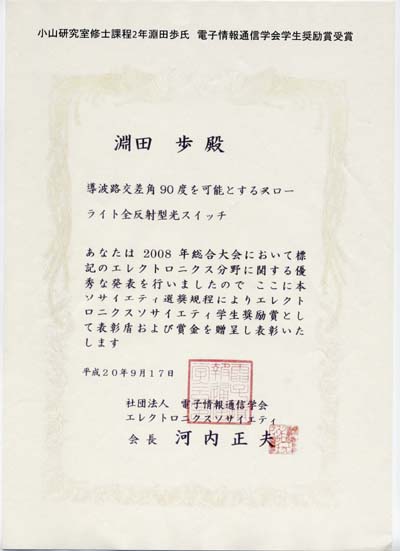 小山研究室修士課程2年淵田歩氏 電子情報通信学会学生奨励賞受賞
淵田 歩 殿
導波路交差角90度を可能とするスロー
ライト全反射型光スイッチ
あなたは2008年総合大会において標
記のエレクトロニクス分野に関する優
秀な発表を行いましたので ここに本
ソサイエティ選奨規程によりエレクト
ロニクスソサイエティ学生奨励賞とし
て表彰盾および賞金を贈呈し表彰いた
します
平成20年9月17日
社団法人 電子情報通信学会
エレクトロニクスソサイエティ
会長 河内正夫